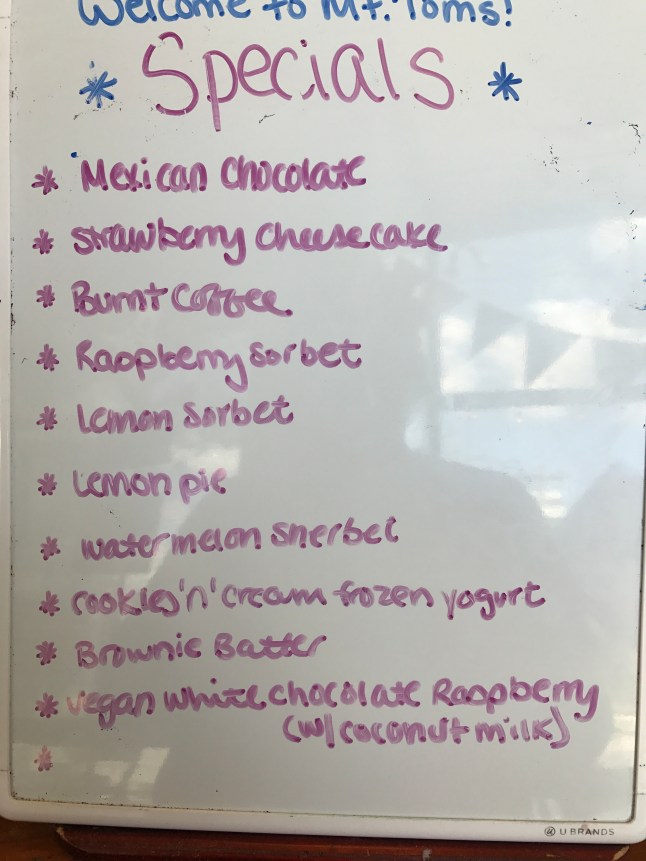 Welcome to Mt. Toms!
* Specials *
* Mexican Chocolate
* Strawberry Cheesecake
* Burnt Coffee
* Raspberry Sorbet
* Lemon Sorbet
* Lemon pie
* Watermelon Sherbet
* Cookies 'n' cream frozen yogurt
* Brownie Batter
* Vegan White Chocolate Raspberry
(w/ coconut milk)
*
U BRANDS